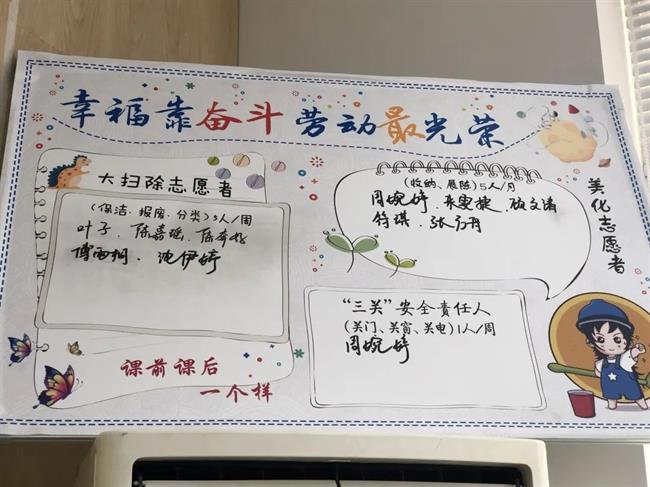 幸福靠奋斗 劳动最光荣
大扫除志愿者
(保洁、报废、分类)5人/周
叶子、陈嘉瑶、陈
傅雨桐、沈伊婷
课前课后
一个样
(收纳、展陈)5人/月
周婉婷、
符琪、张
美化志愿者
“三关”安全责任人
(关门、关窗、关电)1人/周
周婉婷